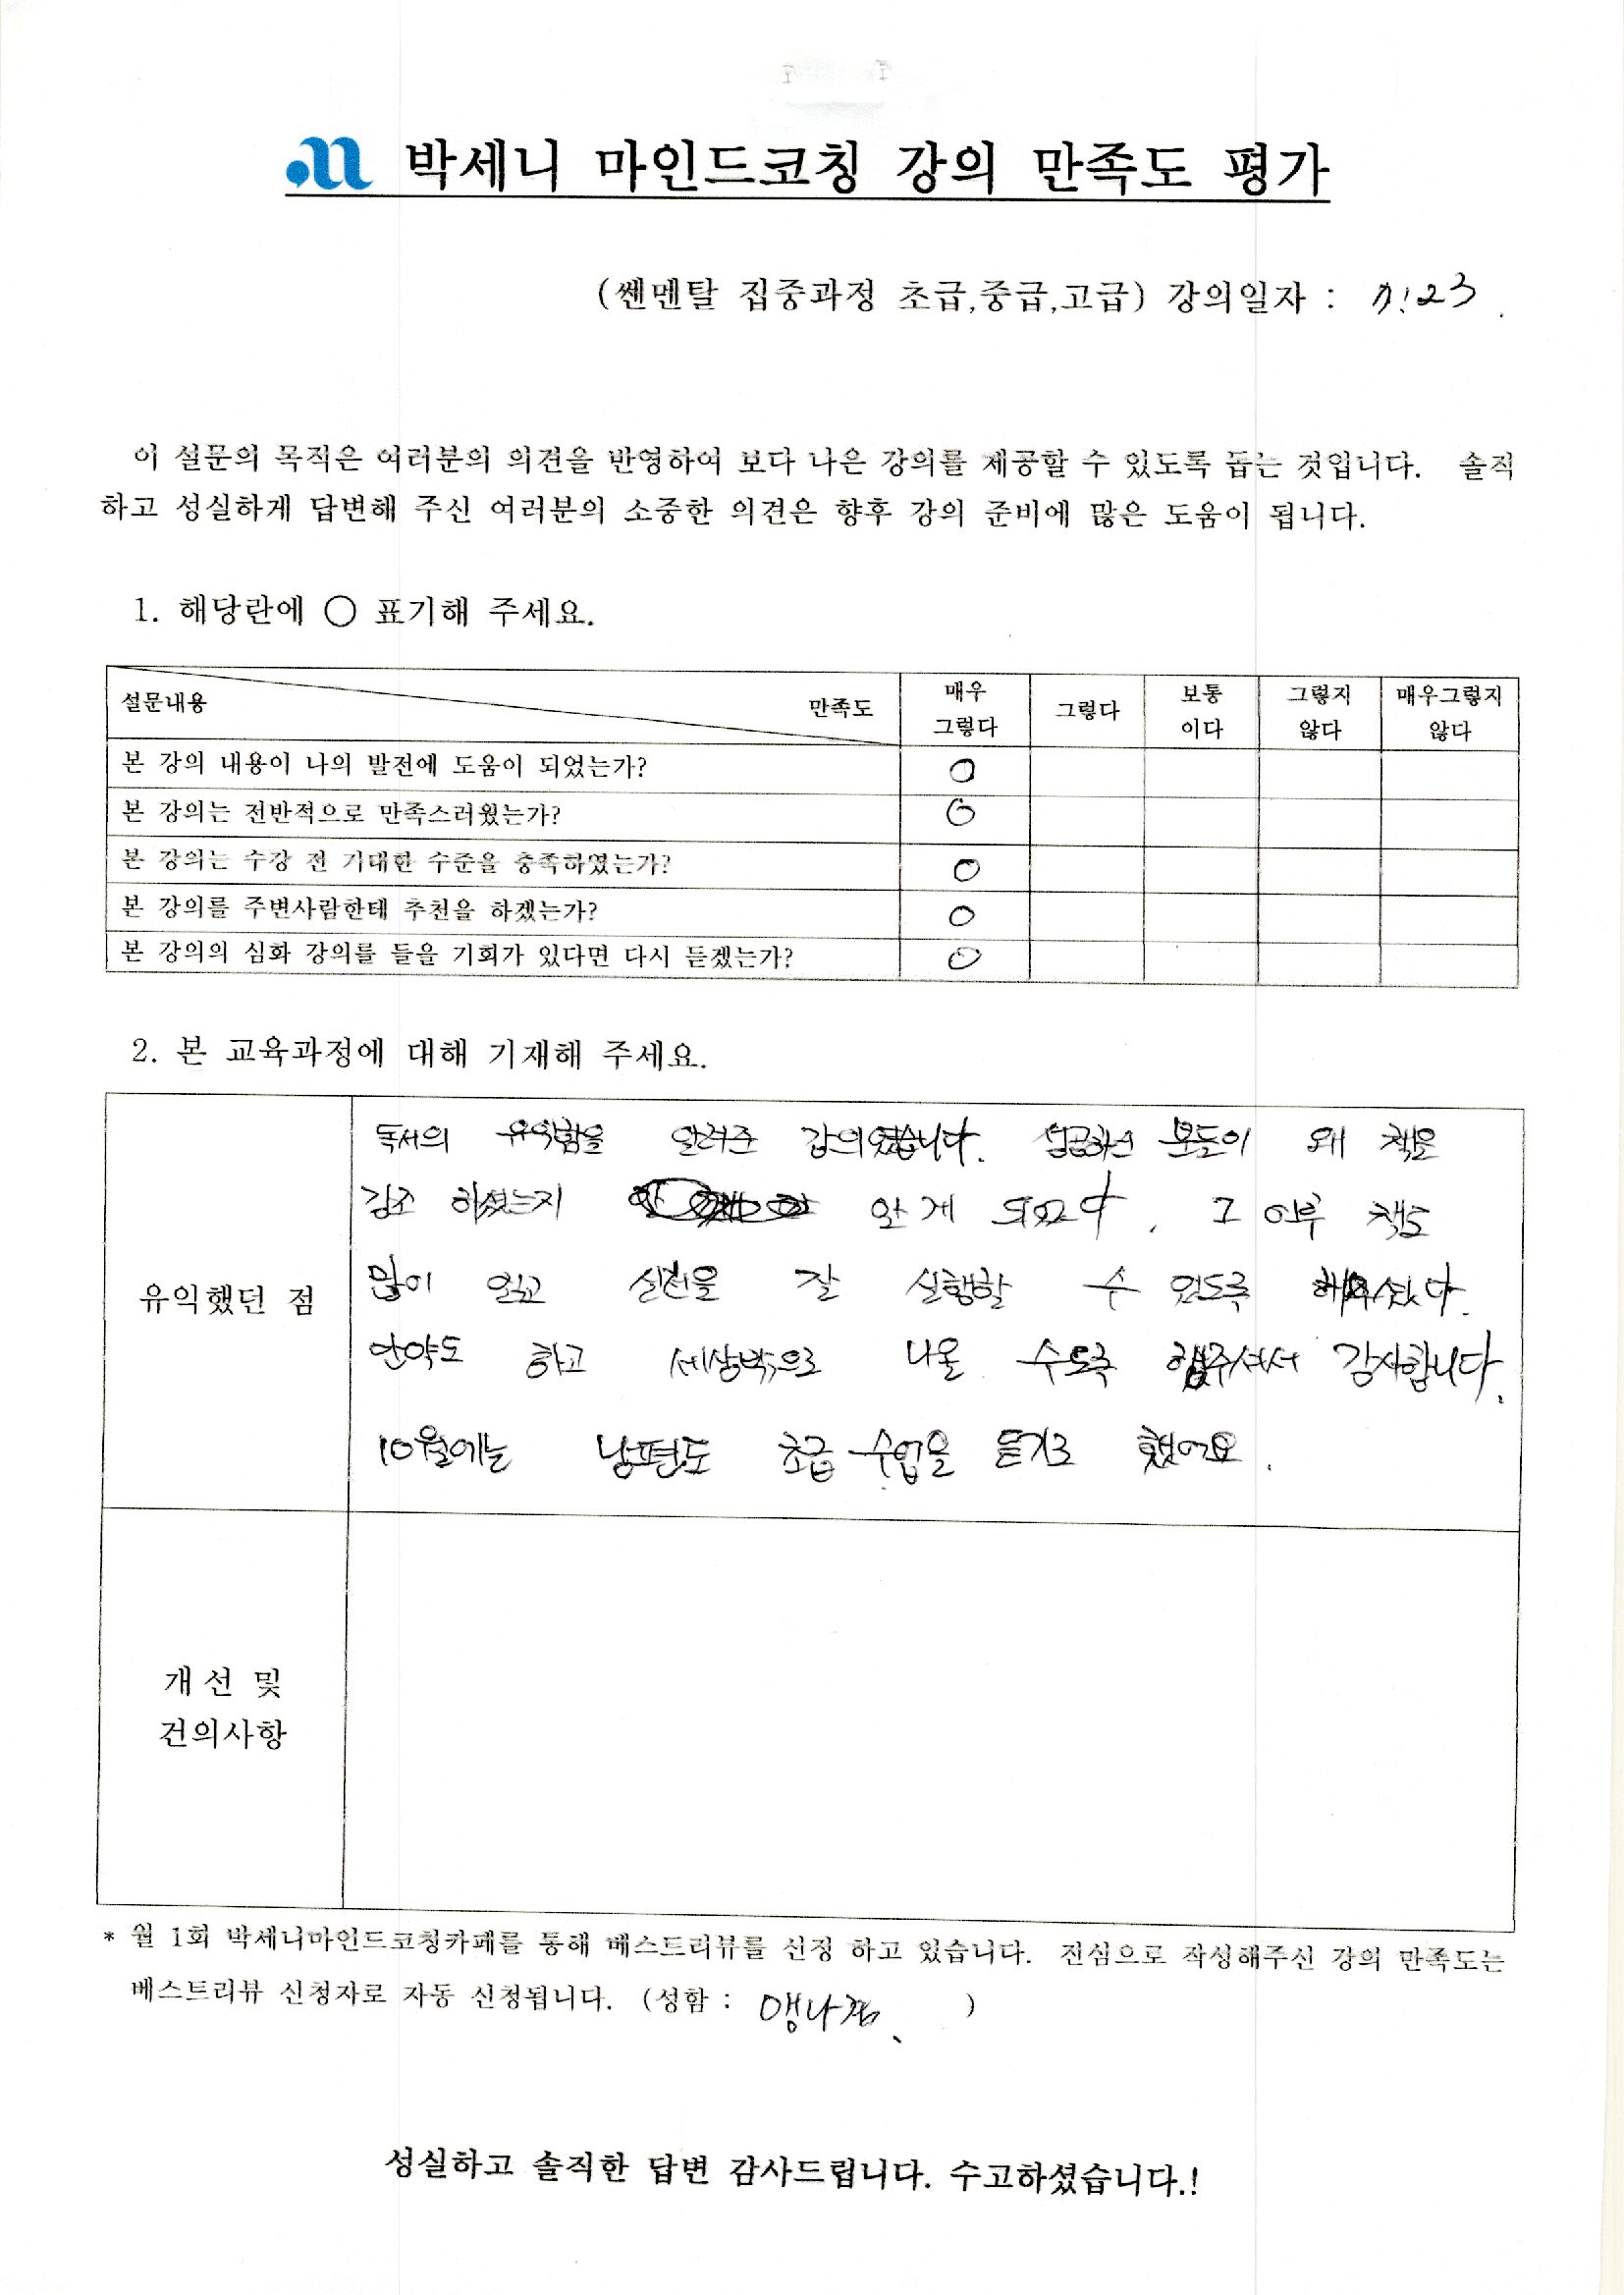 박세니 마인드코칭 강의 만족도 평가
(쎈멘탈 집중과정 초급,중급,고급) 강의일자 : 7.23.
이 설문의 목적은 여러분의 의견을 반영하여 보다 나은 강의를 제공할 수 있도록 돕는 것입니다. 솔직
하고 성실하게 답변해 주신 여러분의 소중한 의견은 향후 강의 준비에 많은 도움이 됩니다.
1. 해당란에 ○ 표기해 주세요.
설문내용 만족도 매우 그렇다 그렇다 보통 이다 그렇지 않다 매우그렇지 않다
본 강의 내용이 나의 발전에 도움이 되었는가? ○
본 강의는 전반적으로 만족스러웠는가? ○
본 강의는 수강 전 기대한 수준을 충족하였는가? ○
본 강의를 주변사람한테 추천을 하겠는가? ○
본 강의의 심화 강의를 들을 기회가 있다면 다시 듣겠는가? ○
2. 본 교육과정에 대해 기재해 주세요.
유익했던 점
독서의 유익함을 알려준 강의였습니다. 성공하신 분들이 왜 책을
강조 하셨는지 알게 되었다. 그 이후 책도
많이 읽고 실천을 잘 실행할 수 있도록 해주셨다.
안약도 하고 세상밖으로 나올 수도록 해주셔서 감사합니다.
10월에는 남편도 초급 수업을 듣기로 했어요.
개선 및
건의사항
* 월 1회 박세니마인드코칭카페를 통해 베스트리뷰를 선정 하고 있습니다. 진심으로 작성해주신 강의 만족도는
베스트리뷰 신청자로 자동 신청됩니다. (성함 : )
성실하고 솔직한 답변 감사드립니다. 수고하셨습니다.!